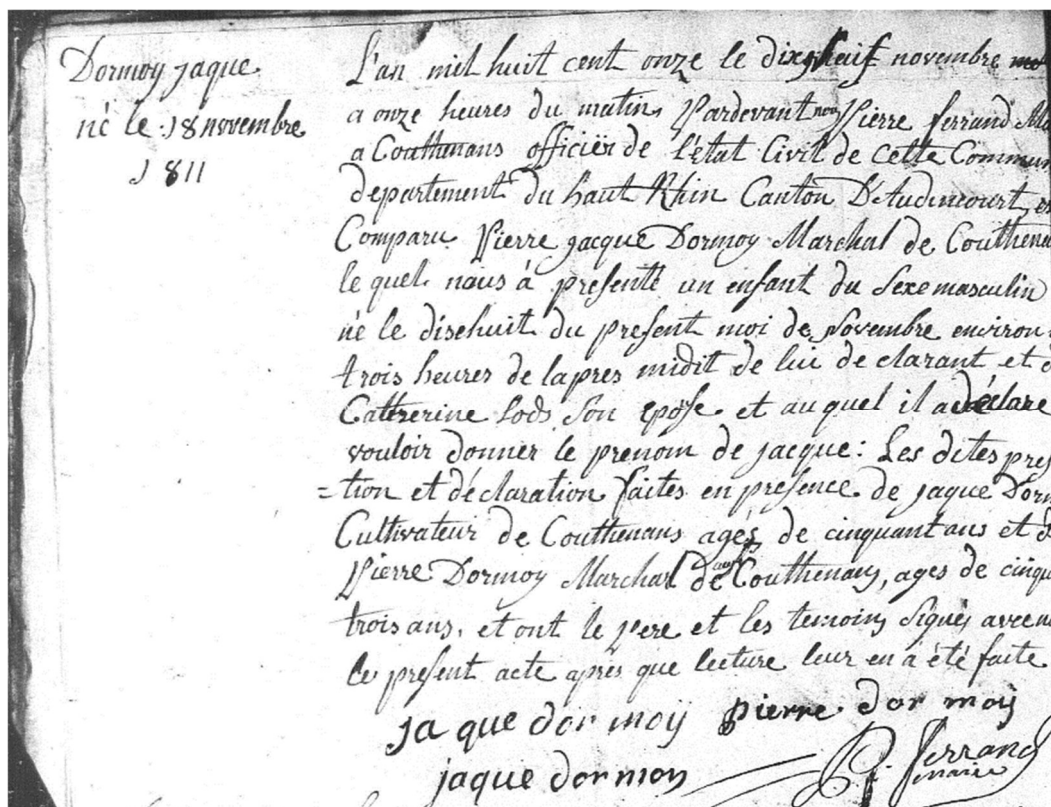 Dormoy jaque
né le 18 novembre
1811
L'an mil huit cent onze le dix novembre
a onze heures du matin Pardevant nous Pierre ferrand
a Couthenans officier de l'état Civil de cette Commun
departement du haut Rhin Canton D'Audincourt, es
Comparu Pierre jacque Dormoy Marchal de Couthena
le quel nous à presenté un enfant du Sexe masculin
né le disehuit du present moi de Novembre environ
trois heures de lapres midit de lui de clarant et d
Catherine Lods Son epose et au quel il a déclare
vouloir donner le prenom de jacque : Les dites pres
=tion et déclaration faites en presence de jaque Dorm
Cultivateur de Couthenans agés de cinquant ans et d
Pierre Dormoy Marchal de Couthenans, ages de cinqu
trois ans, et ont le pere et les temoins Signés avec
ce present acte après que lecture leur en à été faite
ja que dor moÿ pierre dor moÿ
jaque dormoy P. ferrand
maire